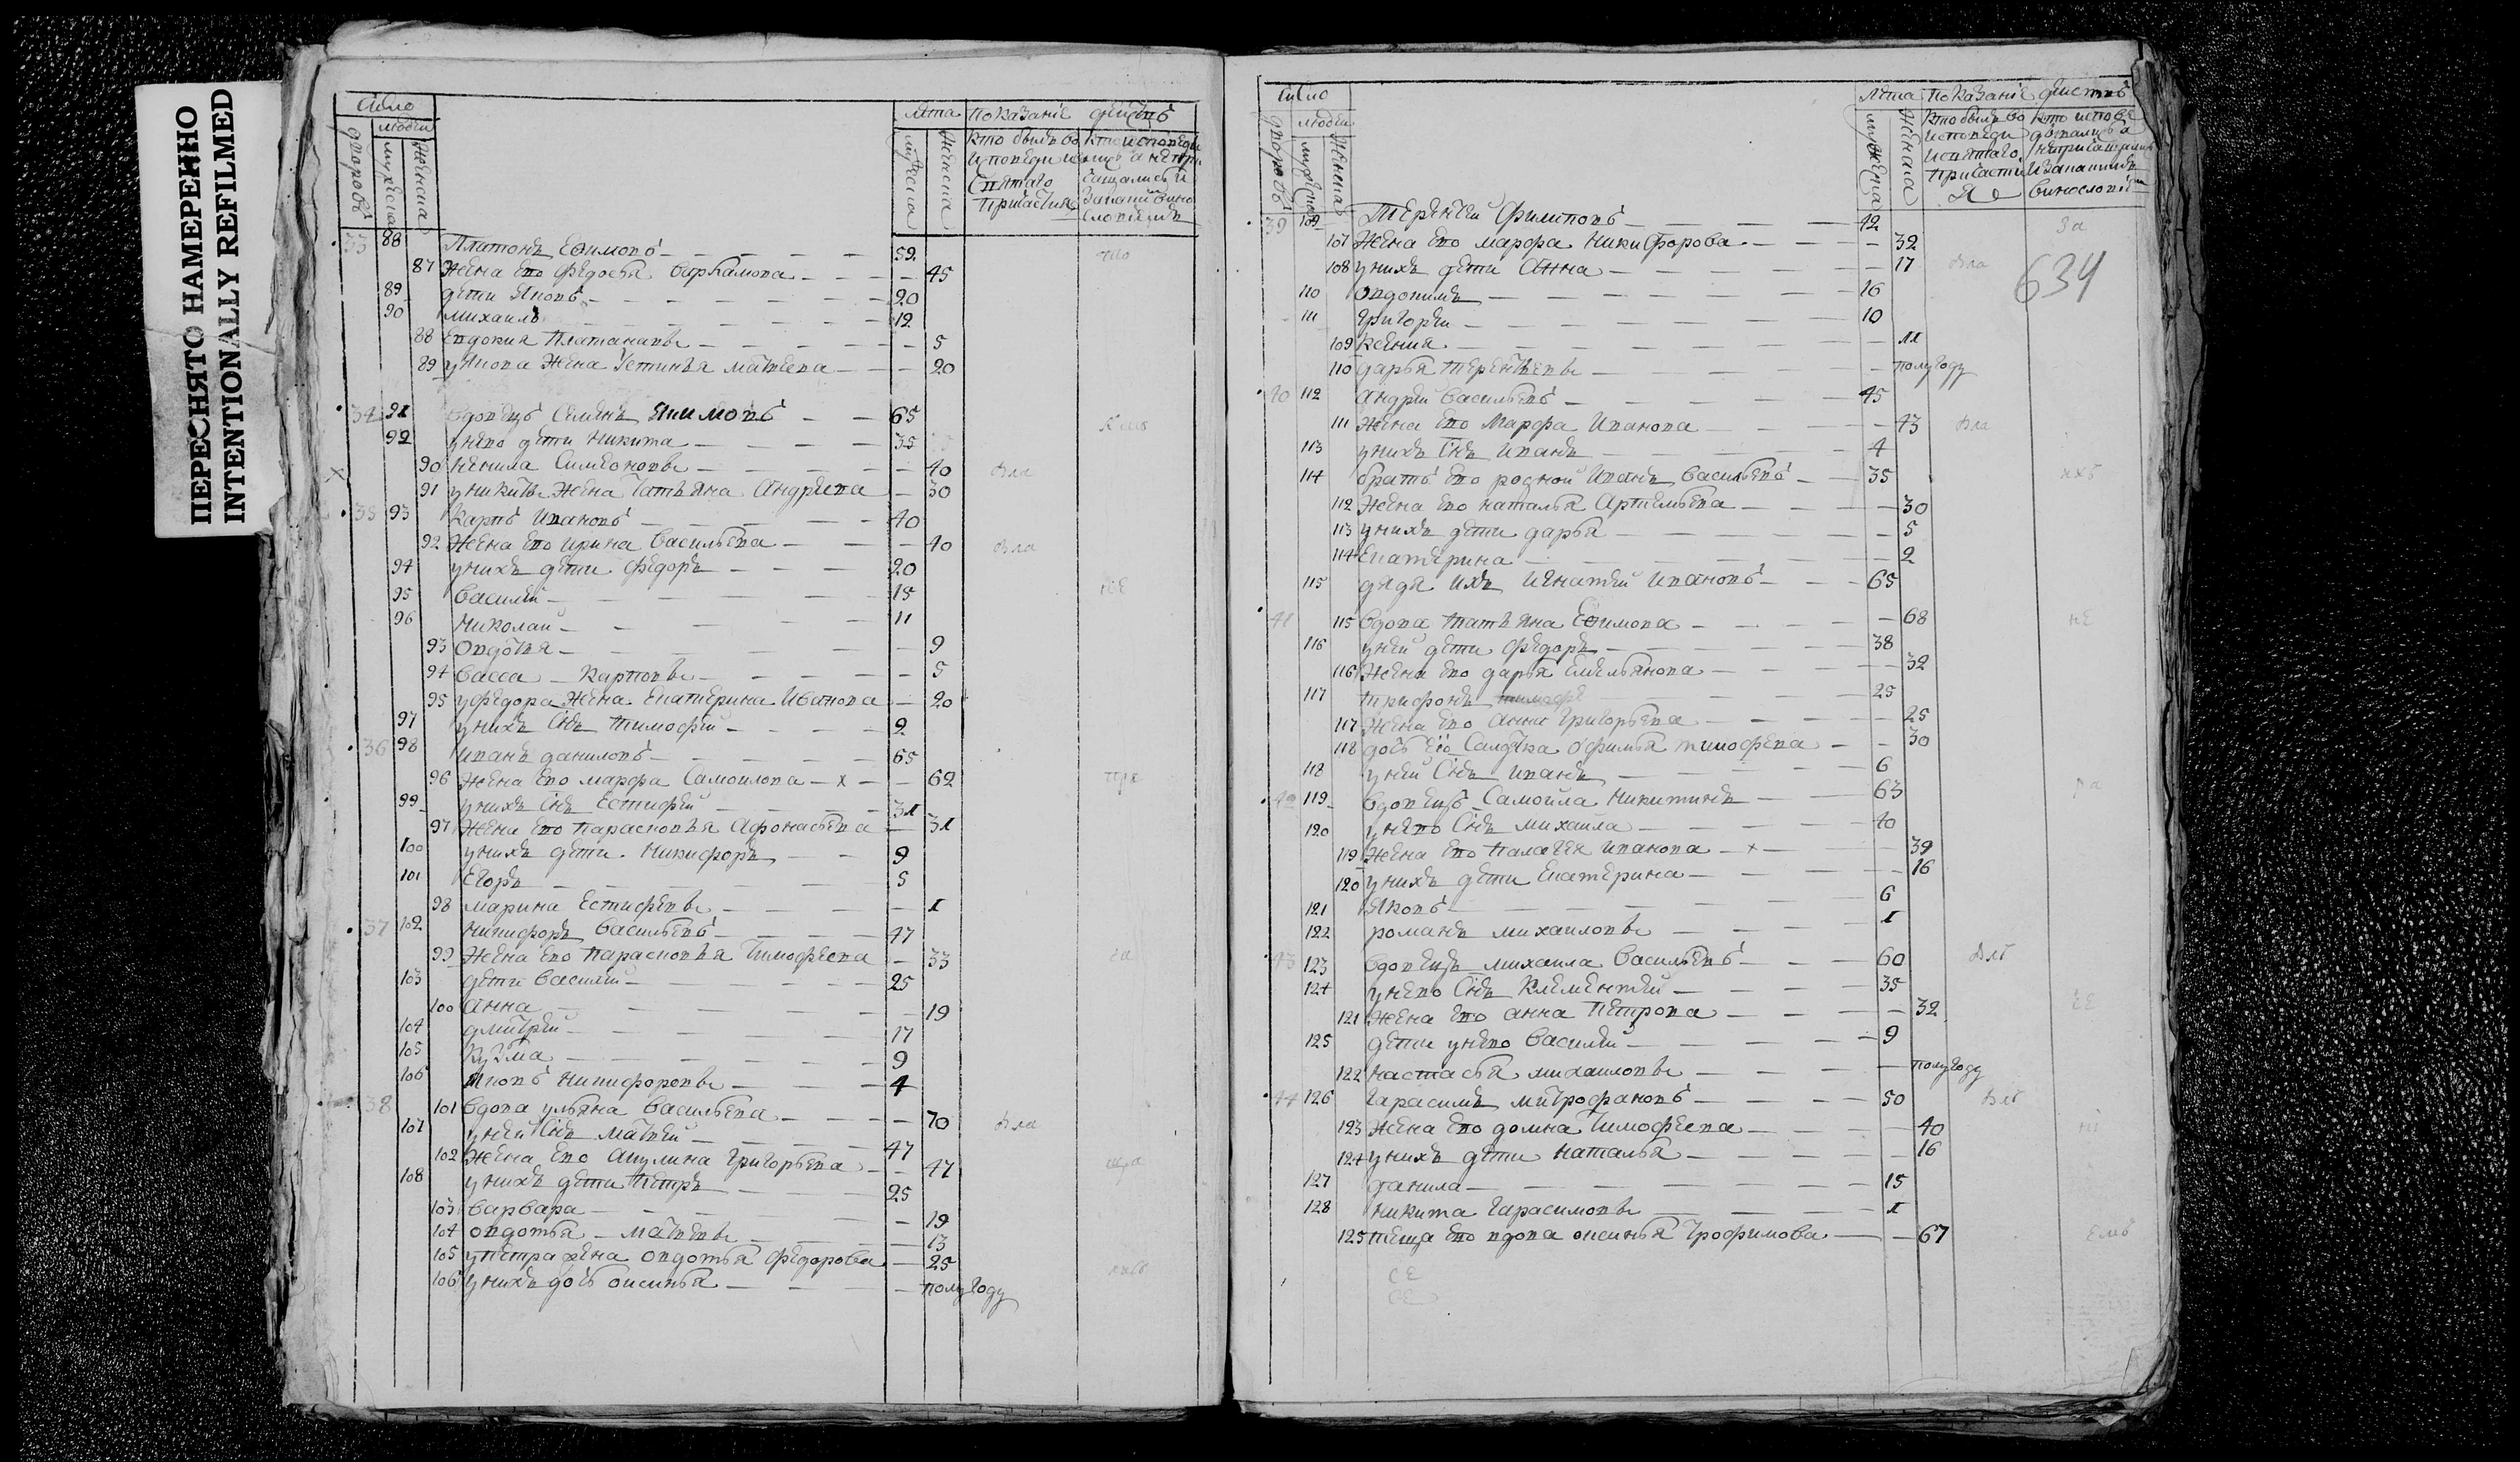 ПЕРЕСНЯТО НАМЕРЕННО
INTENTIONALLY REFILMED
Число
людей
дворовъ
мужеска
женска
Лѣта
мужеска
женска
показанiе дѣйствъ
33 88 Платонъ Ефимовъ 59
87 жена ево Федосья Варламова 45
89 дети Яковъ 20
90 Михаилъ 12
88 Евдокия Платановы 5
89 у Якова жена Устинья Матвеева 20
34 91 вдовецъ Семенъ Якимовъ 65
92 у нево дети Никита 35
90 Ненила Симеоновы 40
91 у Никиты жена Татьяна Андреева 30
35 93 Карпъ Ивановъ 40
92 жена ево Ирина Васильева 40
94 у нихъ дети Федоръ 20
95 Василей 15
96 Николай 11
93 Овдотья 9
94 Васса Карповы 5
95 у Федора жена Екатерина Иванова 20
97 у нихъ снъ Тимофей 2
36 98 Иванъ Даниловъ 65
96 жена ево Марфа Самоилова х 62
99 у нихъ снъ Естифей 31
97 жена ево Парасковья Афонасьева 31
100 у нихъ дети Никифоръ 9
101 Егоръ 5
98 Марина Естифеевы 1
37 102 Никифоръ Васильевъ 47
99 жена ево Парасковья Тимофеева 33
103 дети Василей 25
100 Анна 19
104 Дмитрей 17
105 Кузма 9
106 Яковъ Никифоровы 4
38 101 вдова Ульяна Васильева 70
107 у ней снъ Матвей 47
102 жена ево Акулина Григорьева 47
108 у нихъ дети Петръ 25
103 Варвара 19
104 Овдотья Матвевы 13
105 у Петра жена Овдотья Федорова 25
106 у нихъ дочь Оксинья полугоду
Число
людей
дворовъ
женска
Лѣта
женска
показанiе действъ
634
39 109 Терентей Филиповъ 42
107 жена ево Марфа Никифорова 32
108 у нихъ дети Анна 17
110 Овдокимъ 16
111 Григорей 10
109 Ксения 11
110 Дарья Терентьевы полугоду
40 112 Андрей Васильевъ 45
111 жена ево Марфа Иванова 43
113 у нихъ снъ Иванъ 4
114 братъ ево родной Иванъ Васильевъ 35
112 жена ево Наталья Артемьева 30
113 у нихъ дети Дарья 5
114 Екатерина 2
115 дядя ихъ Игнатей Ивановъ 65
41 115 вдова Татьяна Ефимова 68
116 у ней дети Федоръ 38
116 жена ево Дарья Емельянова 32
117 Трифонъ 25
117 жена ево Анна Григорьева 25
118 дочь ея Салдатка Офимья Тимофеева 30
118 у ней снъ Иванъ 6
42 119 вдовецъ Самойла Никитинъ 63
120 у нево снъ Михайла 40
119 жена ево Палагея Иванова х 39
120 у нихъ дети Екатерина 16
121 Яковъ 6
122 Романъ Михаиловы 1
43 123 вдовецъ Михаила Васильевъ 60
124 у нево снъ Клементей 35
121 жена ево Анна Петрова 32
125 дети у нево Василей 9
122 Настасья Михаиловы полугоду
44 126 Гарасимъ Митрофановъ 50
123 жена ево Домна Тимофеева 40
124 у нихъ дети Наталья 16
127 Данила 15
128 Никита Гарасимовы 1
125 теща ево вдова Оксинья Трофимова 67